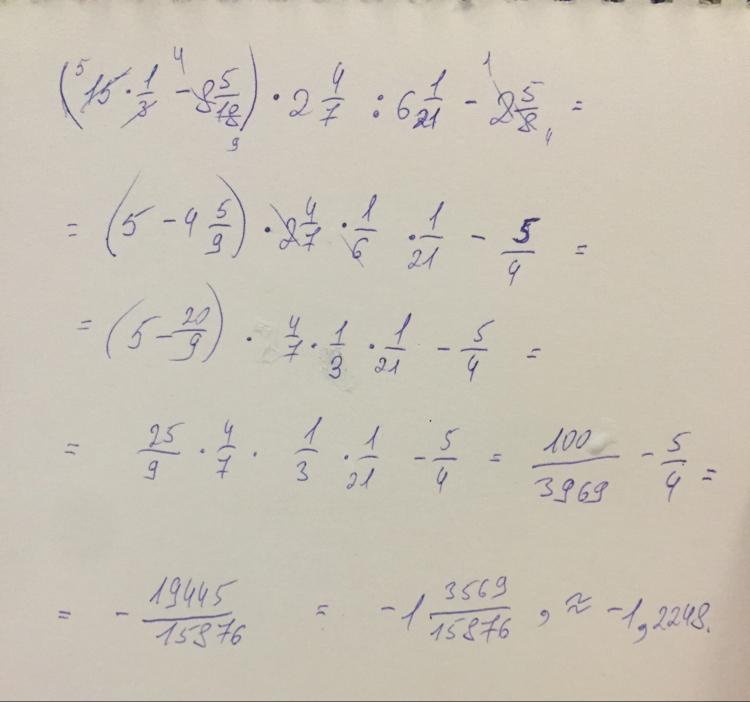 (15 · 1/3 - 8 5/18) · 2 4/7 : 6 1/21 - 2 5/8 =
= (5 - 4 5/9) · 2 4/7 · 1/6 · 1/21 - 5/4 =
= (5 - 20/9) · 4/7 · 1/3 · 1/21 - 5/4 =
= 25/9 · 4/7 · 1/3 · 1/21 - 5/4 = 100/3969 - 5/4 =
= - 19445/15876 = -1 3569/15876 , ≈ -1,2248.